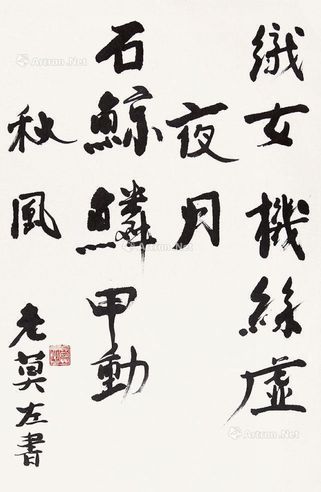 織女機絲虛
夜月
石鯨鱗甲動
秋風
老莫左書
Artron.Net
Artron.Net
Artron.Net
Artron.Net